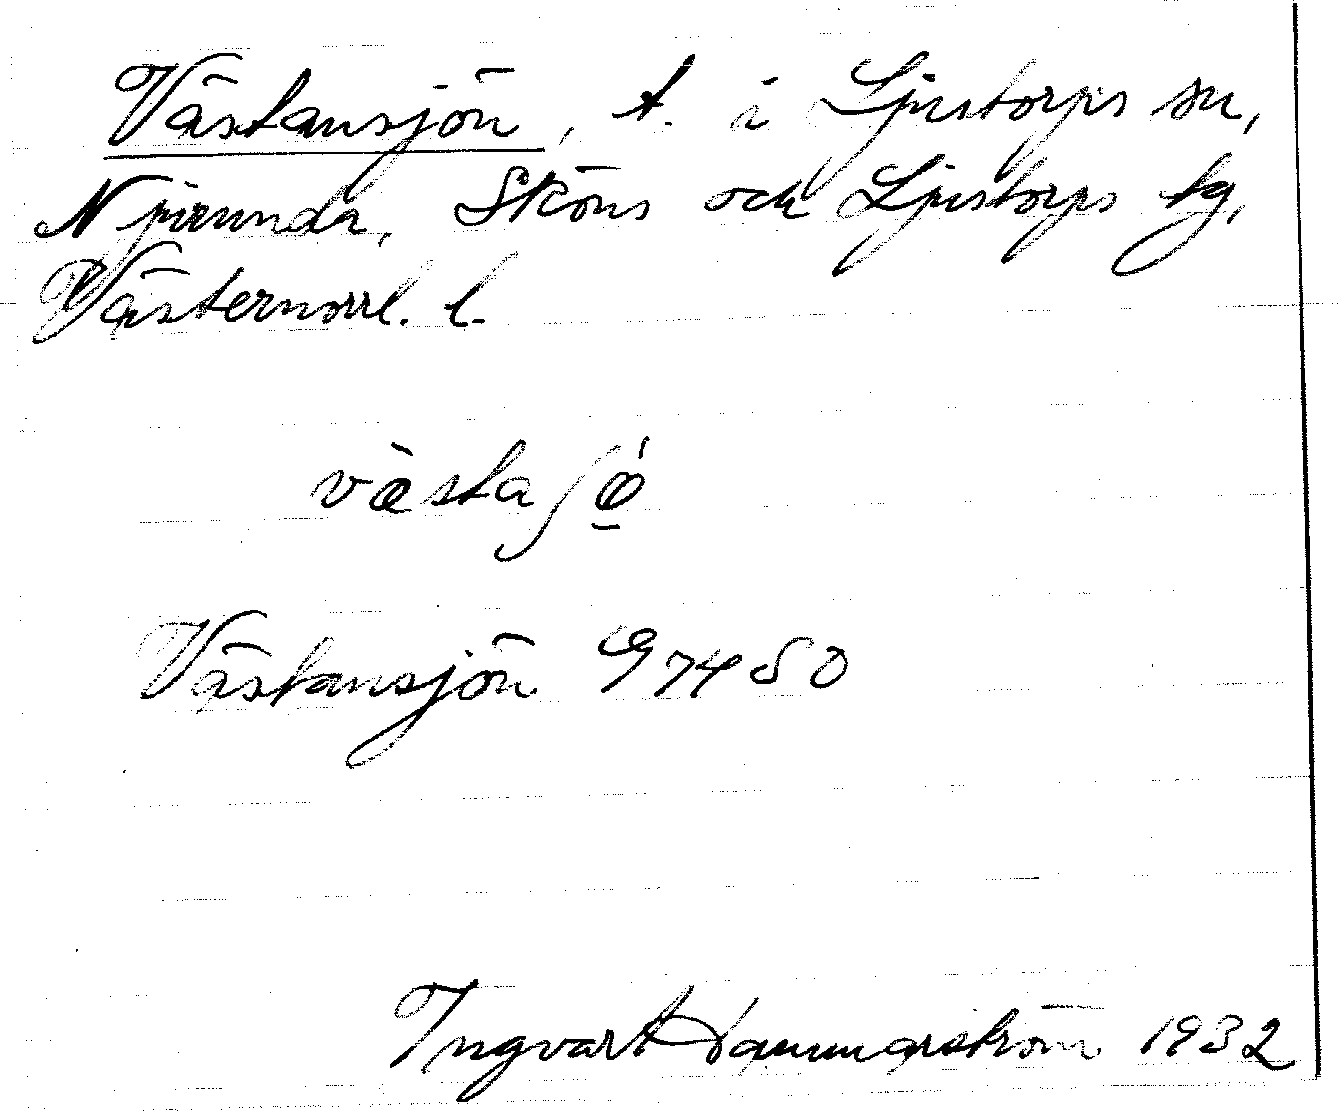 Västansjön, t. i Ljustorps sn,
Njurunda, Sköns och Ljustorps tg,
Västernorrl. l.
væ̀sta ʃǿ̠
Västansjön 97450
Ingvart Hammarström 1932